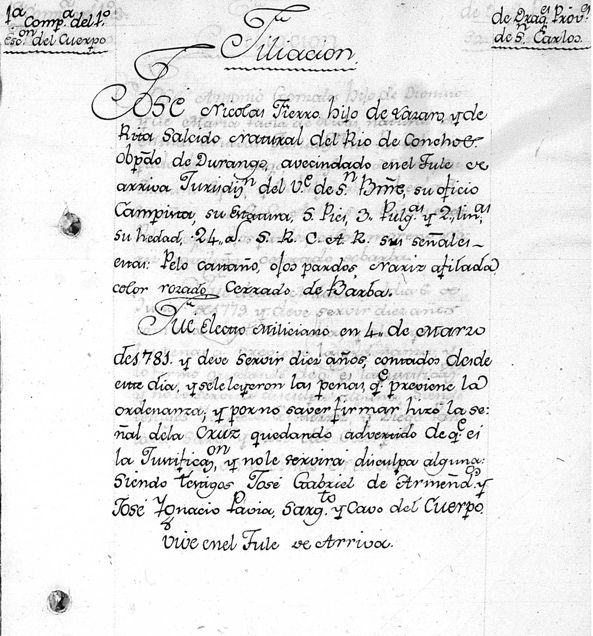 1ª Compª del 1º
Escᵒⁿ del Cuerpo
de Dragˢ Provˢ
de Sⁿ Carlos.
Filiacion
José Nicolas Fierro hijo de Lazaro, y de
Rita Salcido Natural del Rio de Conchos
obpdo de Durango, avecindado en el Tule de
arriva Jurisdⁿ del Vᵉ de Sⁿ Bmē, su oficio
Campista, su Estatura, 5 Pies, 3 Pulgᵃˢ y 2, linᵃˢ
su hedad, 24 aˢ S. R. C. A. R. sus señales
estas: Pelo castaño, ojos pardos, nariz afilada
color rozado, Cerrado de Barba.
Fue Electo Miliciano en 4 de Marzo
de 1781 y deve servir diez años, contados desde
este dia, y se le leyeron las penas, qᵉ previene la
ordenanza, y por no saver firmar hizo la se-
ñal dela Cruz quedando advertido de qᵉ es
la Justificaᵒⁿ, y no le servirá disculpa alguna:
Siendo testigos José Gabriel de Armendˢ y
José Ygnacio Pavia, Sargᵗᵒ y Cavo del Cuerpo.
Vive en el Tule de Arriva.